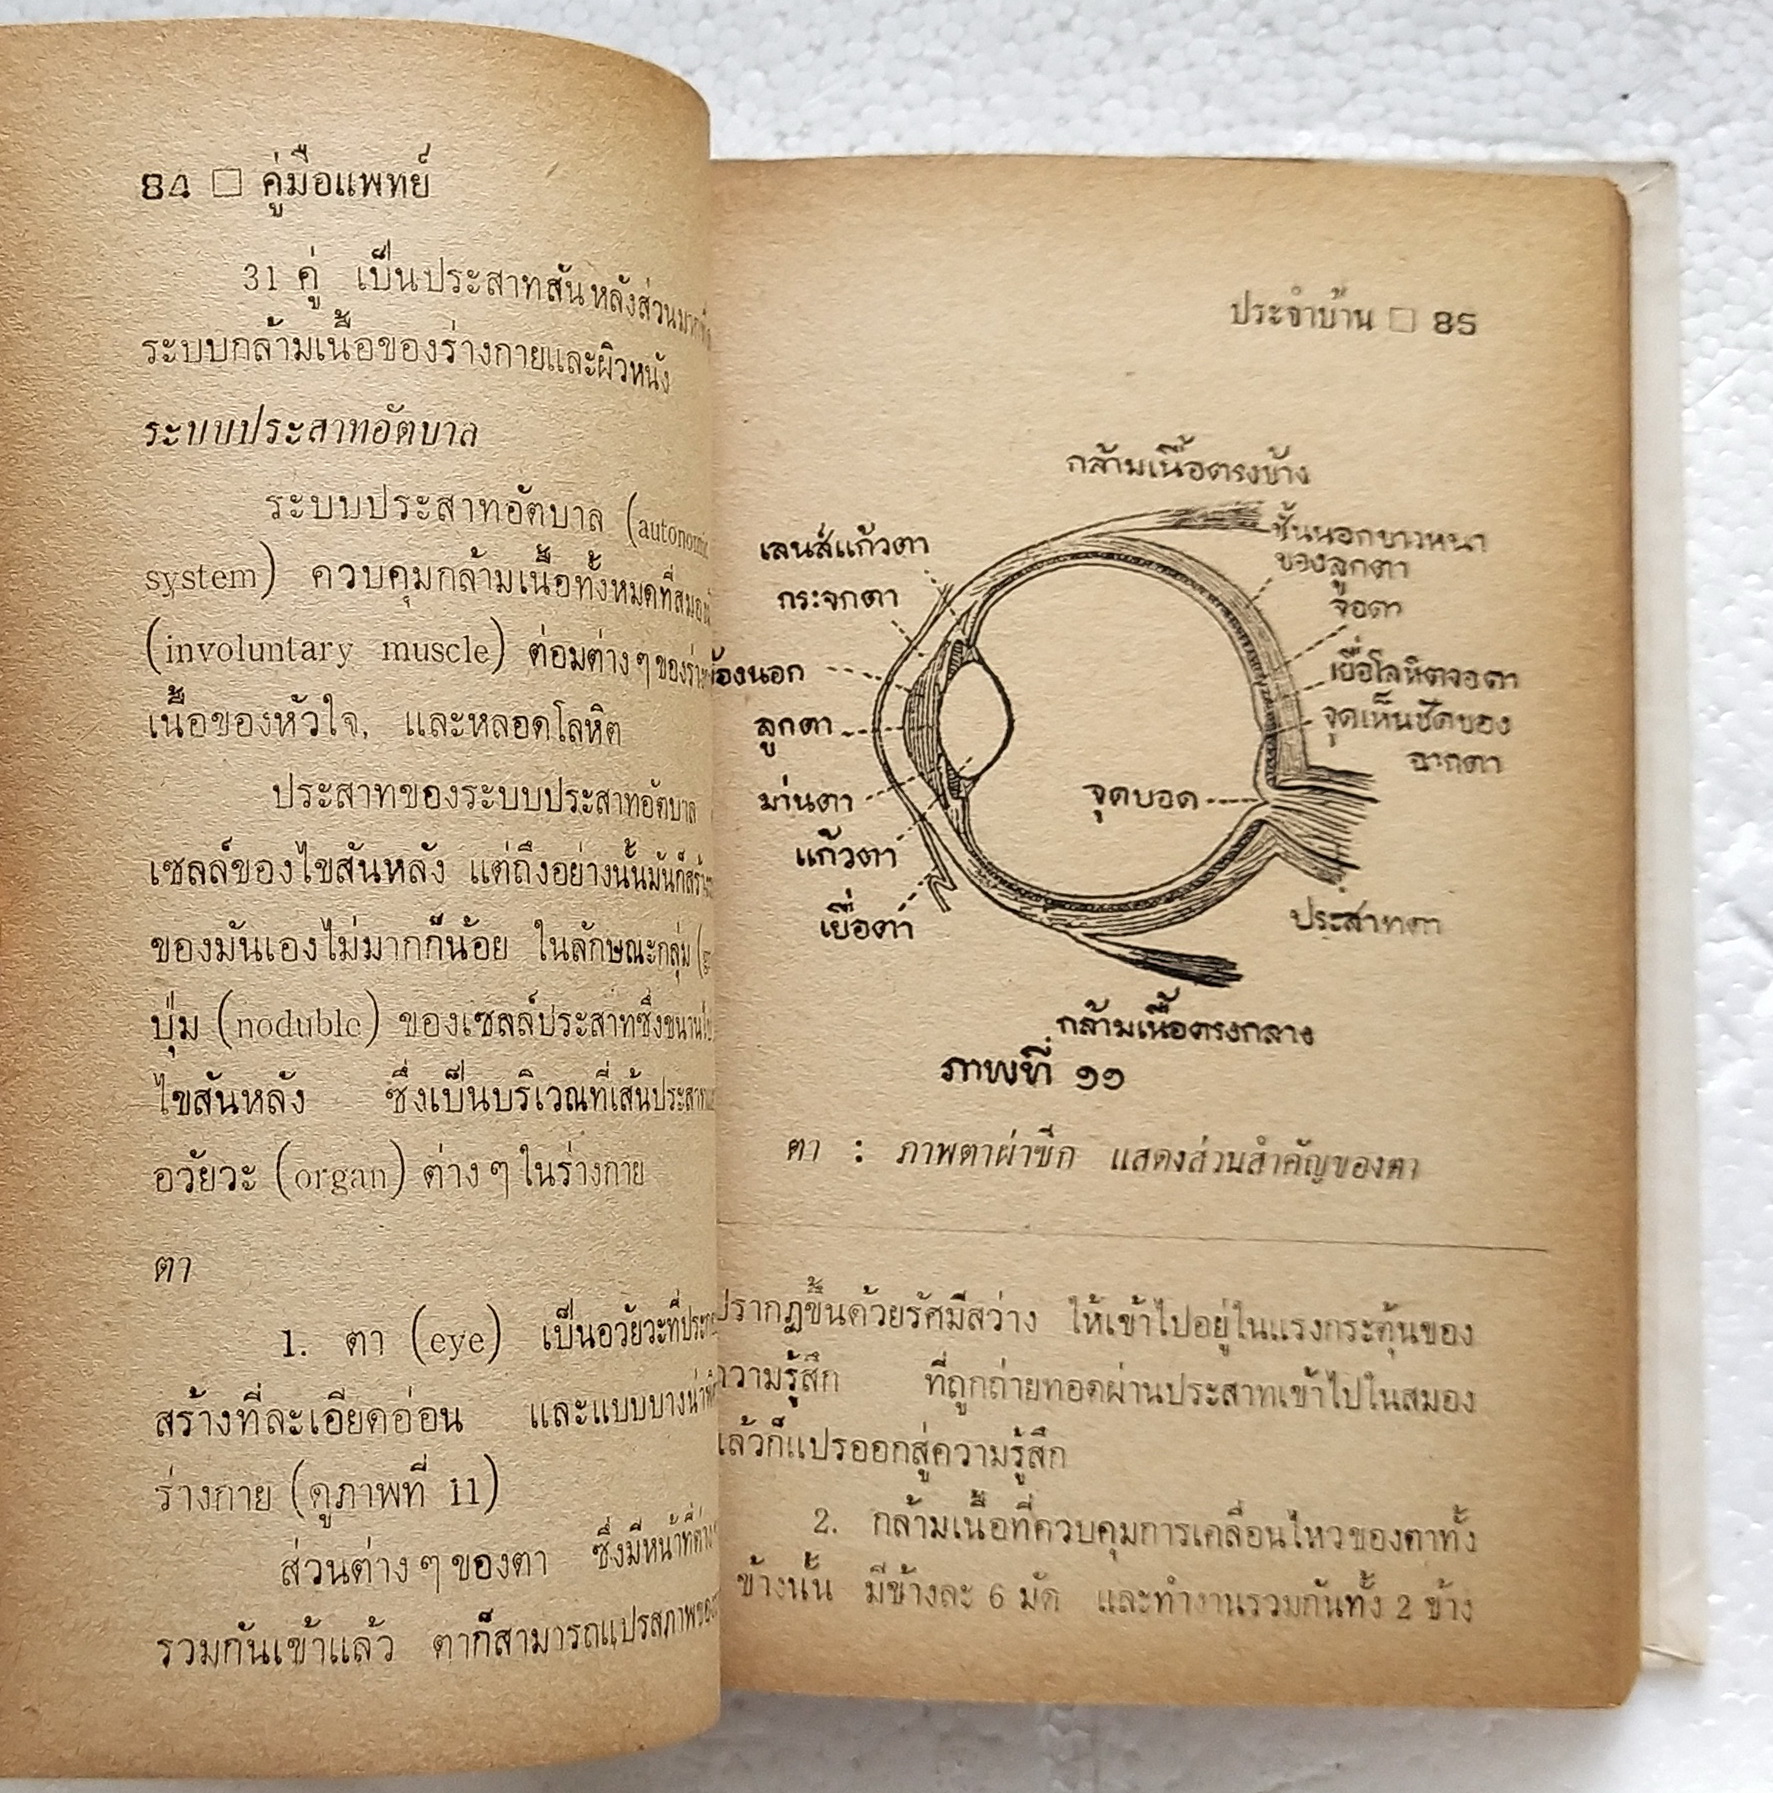 84 □ คู่มือแพทย์
31 คู่ เป็นประสาทสันหลังส่วนมาก
ระบบกล้ามเนื้อของร่างกายและผิวหนัง
ระบบประสาทอัตบาล
ระบบประสาทอัตบาล (autonomic
system) ควบคุมกล้ามเนื้อทั้งหมดที่สมอง
(involuntary muscle) ต่อมต่าง ๆ ของ
เนื้อของหัวใจ, และหลอดโลหิต
ประสาทของระบบประสาทอัตบาล
เซลล์ของไขสันหลัง แต่ถึงอย่างนั้นมันก็
ของมันเองไม่มากก็น้อย ในลักษณะกลุ่ม
ปุ่ม (noduble) ของเซลล์ประสาทซึ่ง
ไขสันหลัง ซึ่งเป็นบริเวณที่เส้นประสาท
อวัยวะ (organ) ต่าง ๆ ในร่างกาย
ตา
1. ตา (eye) เป็นอวัยวะที่
สร้างที่ละเอียดอ่อน และแบบบาง
ร่างกาย (ดูภาพที่ 11)
ส่วนต่าง ๆ ของตา ซึ่งมีหน้าที่
รวมกันเข้าแล้ว ตาก็สามารถแปรสภาพ
ประจำบ้าน □ 85
กล้ามเนื้อตรงข้าง
เลนส์แก้วตา
กระจกตา
ห้องนอก
ลูกตา
ม่านตา
แก้วตา
เยื่อตา
ชั้นนอกขาวหนา
ของลูกตา
จอตา
เยื่อโลหิตจอตา
จุดเห็นชัดของ
ฉากตา
จุดบอด
ประสาทตา
กล้ามเนื้อตรงกลาง
ภาพที่ ๑๑
ตา : ภาพตาผ่าซีก แสดงส่วนสำคัญของตา
ปรากฏขึ้นด้วยรัศมีสว่าง ให้เข้าไปอยู่ในแรงกระตุ้นของ
ความรู้สึก ที่ถูกถ่ายทอดผ่านประสาทเข้าไปในสมอง
แล้วก็แปรออกสู่ความรู้สึก
2. กล้ามเนื้อที่ควบคุมการเคลื่อนไหวของตาทั้ง
ข้างนั้น มีข้างละ 6 มัด และทำงานรวมกันทั้ง 2 ข้าง